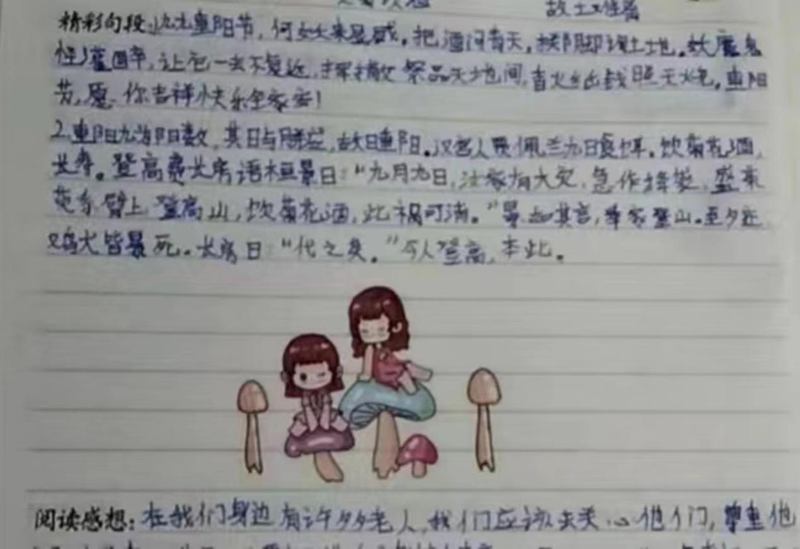 故土难离
精彩句段: 九九重阳节, 何妖来显威。把酒问青天, 挥脚踩土地。妖魔急
忙溜回草, 让它一去不复返, 挥撒祭品天地间, 香火出线照天地。重阳
节, 愿你吉祥快乐全家安!
2.重阳九为阳数, 其日与月并应, 故曰重阳。汉宫人佩兰九日食饵。饮菊花酒,
长寿。登高费长房语桓景曰: "九月九日, 汝家有大灾, 急作绛囊, 盛茱
萸系臂上 登高山, 饮菊花酒, 此祸可消。"景如其言, 举家登山。至夕还
鸡犬皆暴死。长房曰: "代之矣。"今人登高, 本此。
阅读感想: 在我们身边有许多老人, 我们应该去关心他们, 尊重他